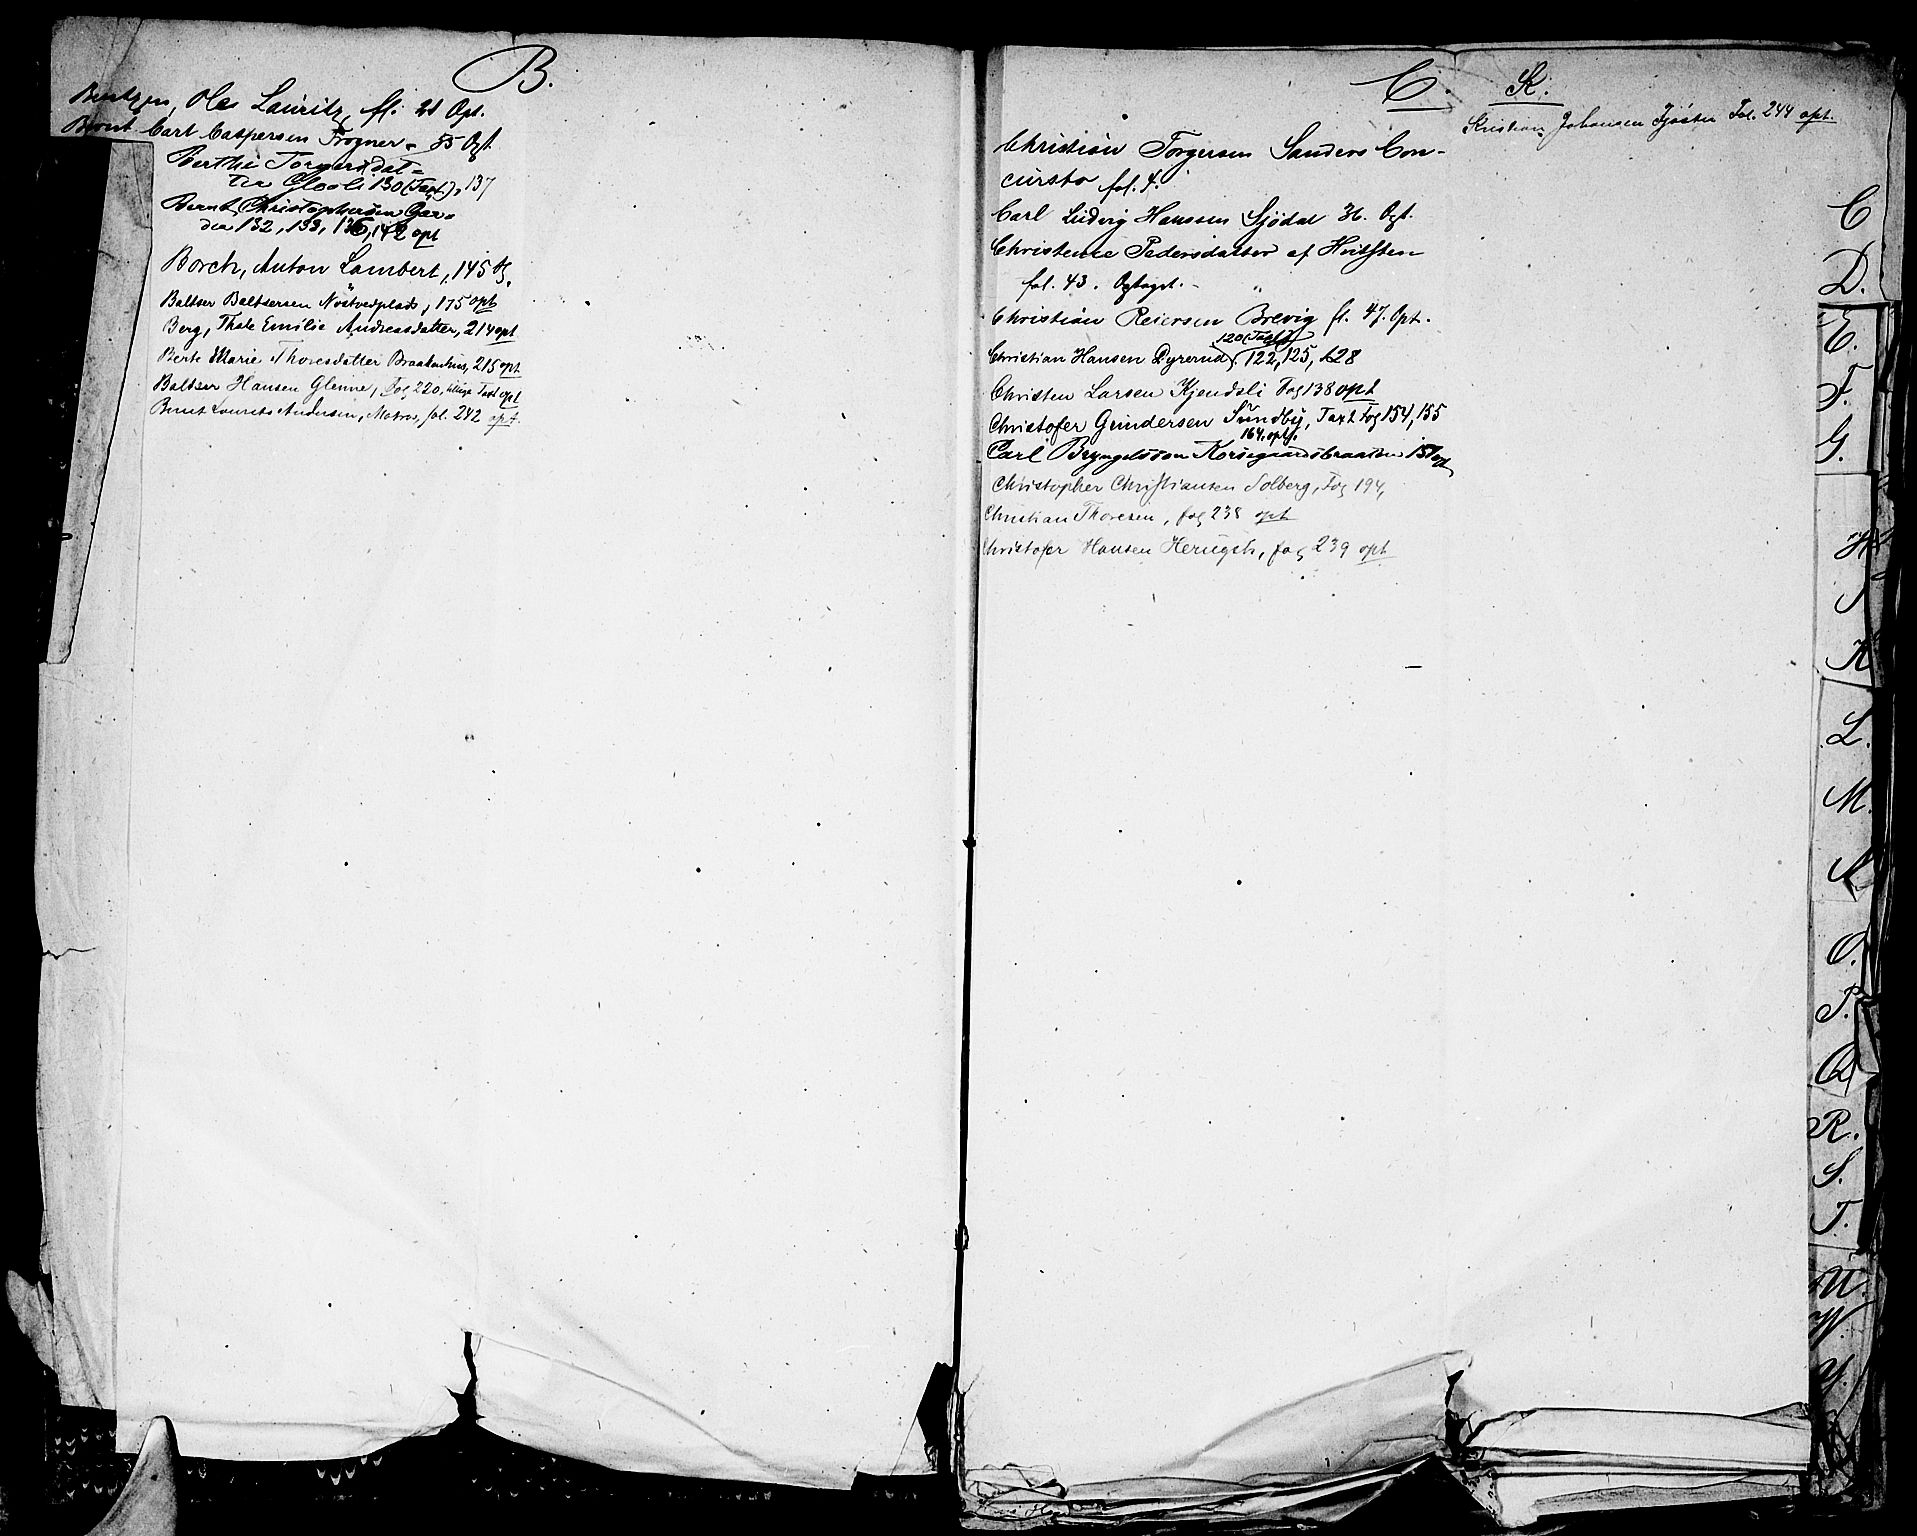 B.
Bentzen, Ole Lauritz, fl. 21 Opt.
Bernt Carl Caspersen Frogner - 55 Opt
Berthe Torgersdat=
ter Glooli 130 (Taxt), 137
Bernt Christophersen Gar=
der 132, 133, 136, 142 opt
Borch, Anton Lambert, 145 O
Baltser Baltsersen Nöstvedplads, 175 opt
Berg, Thale Emilie Andreasdatter, 214 opt
Berte Marie Thoresdatter Braatenhus, 215 opt
Baltser Hansen Glenne, Fog 220, tillige Taxt opt
Bernt Laurits Andersen, Matros, fol. 242 opt.
C. K.
Kristian Johansen Fol. 244 opt.
Christian Torgersen Sanders Con-
cursbo fol. 4.
Carl Ludvig Hanssen Sjödal 36. Opt.
Christense Pedersdatter af Hvitsten
fol. 43. Optaget.
Christian Reiersen Brevig fl. 47. Opt.
120 (Taxt)
Christian Hansen Dyrerud, 122, 125, 128
Christen Larsen Kjendsli Fog 138 opt
Christofer Gundersen Sundby, Taxt Fog 154, 155
164. opt.
Carl Bryngelsson Korsegaardsbraaten 157 op
Christopher Christiansen Solberg, Fog 194,
Christian Thoresen, fog 238 opt
Christofer Hansen, fog 239 opt
C
D.
E.
F.
G.
H
I
K
L.
M.
N
O.
P.
Q
R.
S.
T.
U.
W.
Y.